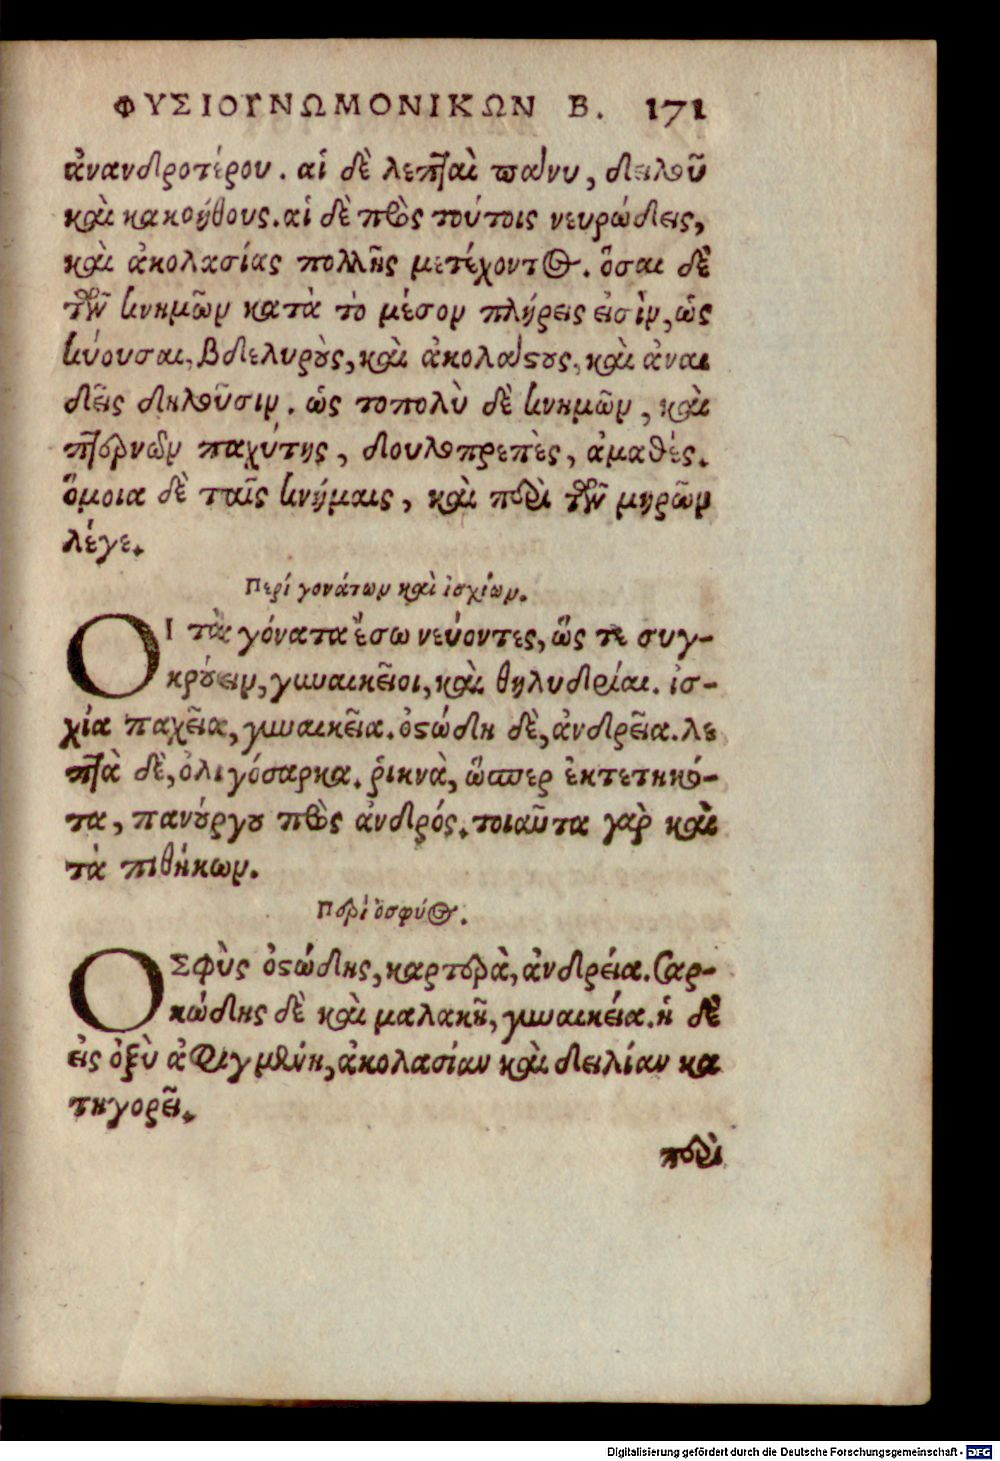 ΦΥΣΙΟΓΝΩΜΟΝΙΚΩΝ Β. 171
ἀνανδροτέρου. αἱ δὲ λεπταὶ πάνυ, δειλοῦ
καὶ κακοήθους. αἱ δὲ πρὸς τούτοις νευρώδεις,
καὶ ἀκολασίας πολλῆς μετέχοντος. ὅσαι δὲ
τῶν κνημῶν κατὰ τὸ μέσον πλήρεις εἰσὶν, ὡς
κύουσαι, βδελυροὺς, καὶ ἀκολάστους, καὶ ἀναι
δεῖς δηλοῦσιν. ὡς τοπολὺ δὲ κνημῶν, καὶ
πτερνῶν παχύτης, δουλοπρεπὲς, ἀμαθές.
ὅμοια δὲ ταῖς κνήμαις, καὶ περὶ τῶν μηρῶν
λέγε.
Περί γονάτων καὶ ἰσχίων.
ΟΙ τὰ γόνατα ἔσω νεύοντες, ὥς τε συγ-
κρούειν, γυναικεῖοι, καὶ θηλυδρίαι. ἰσ-
χία παχεῖα, γυναικεῖα. ὀστώδη δὲ, ἀνδρεῖα. λε
πτὰ δὲ, ὀλιγόσαρκα. ῥικνὰ, ὥσπερ ἐκτετηκό-
τα, πανούργου πρὸς ἀνδρός. τοιαῦτα γὰρ καὶ
τὰ πιθήκων.
Περὶ ὀσφύος.
ΟΣφὺς ὀστώδης, καρτερὰ, ἀνδρεία. Σαρ-
κώδης δὲ καὶ μαλακὴ, γυναικεία. ἡ δὲ
εἰς ὀξὺ ἀφιγμένη, ἀκολασίαν καὶ δειλίαν κα
τηγορεῖ.
περὶ
Digitalisierung gefördert durch die Deutsche Forschungsgemeinschaft - DFG